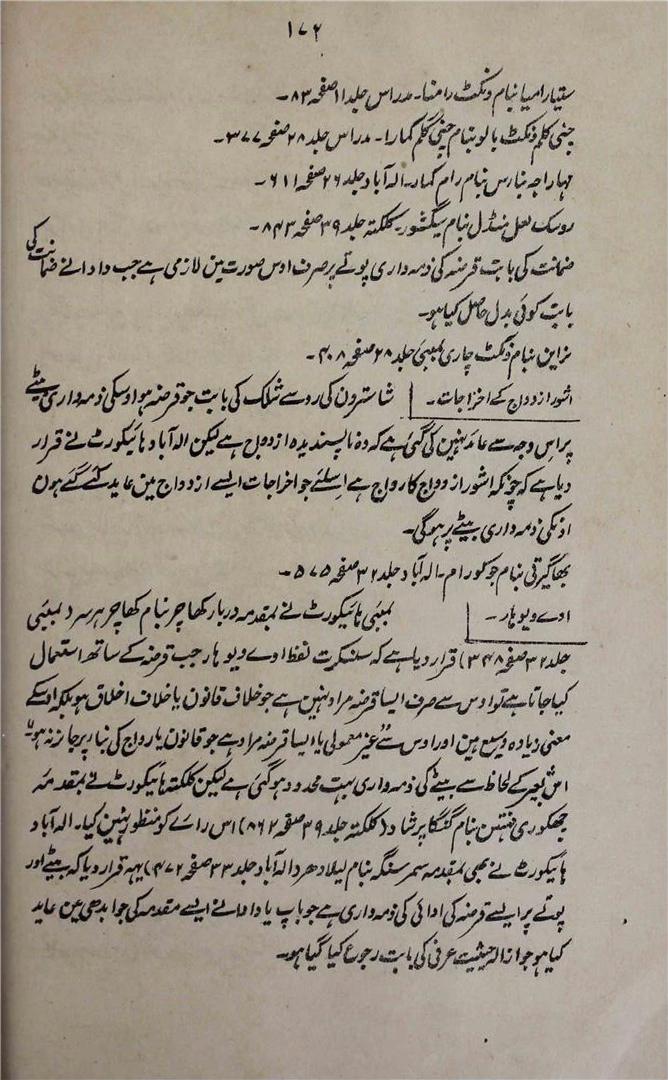 ۱۷۲
ستیارامیا بنام ونکٹ رامنا۔ مدراس جلد ۱۱ صفحہ ۸۳۔
چنی کلم ونکٹ بالو بنام چنی کلم کمارا۔ مدراس جلد ۲۸ صفحہ ۳۷۷۔
مہاراجہ بنارس بنام رام کمار۔ الہ آباد جلد ۲۶ صفحہ ۶۱۱۔
روسک لعل منڈل بنام سنگشور۔ کلکتہ جلد ۳۹ صفحہ ۸۴۳۔
ضمانت کی بابت قرضہ کی ذمہ داری پوتے پر صرف اوس صورت مین لازمی ہے جب دادا نے ضمانت کی
بابت کوئی بدل حاصل کیا ہو۔
نراین بنام ونکٹ چاری بمبئی جلد ۲۸ صفحہ ۴۰۸۔
اشور ازدواج کے اخراجات۔ شاسترون کی رو سے شلک کی بابت جو قرضہ ہو اوسکی ذمہ داری بیٹے
پر اس وجہ سے عاید نہین کی گئی ہے کہ وہ ناپسندیدہ ازدواج ہے لیکن الہ آباد ہائیکورٹ نے قرار
دیا ہے کہ چونکہ اشور ازدواج کا رواج ہے اسلئے جو اخراجات ایسے ازدواج مین عاید کئے گئے ہون
اونکی ذمہ داری بیٹے پر ہوگی۔
بھاگیرتی بنام جوکھورام۔ الہ آباد جلد ۳۲ صفحہ ۵۷۵۔
اوے ویوہار۔ بمبئی ہائیکورٹ نے بمقدمہ دربار کھاچر بنام کھاچر ہرسر (بمبئی
جلد ۳۲ صفحہ ۳۴۸) قرار دیا ہے کہ سنسکرت لفظ اوے ویوہار جب قرضہ کے ساتھ استعمال
کیا جاتا ہے تو اوس سے صرف ایسا قرضہ مراد نہین ہے جو خلاف قانون یا خلاف اخلاق ہو بلکہ اوسکے
معنی زیادہ وسیع ہین اور اوس سے "غیر معمولی یا ایسا قرضہ مراد ہے جو قانون یا رواج کی بناء پر جائز نہ ہو"
اس تعبیر کے لحاظ سے بیٹے کی ذمہ داری بہت محدود ہوگئی ہے لیکن کلکتہ ہائیکورٹ نے بمقدمہ
چھکوری مہتن بنام گنگا پرشاد (کلکتہ جلد ۳۹ صفحہ ۸۶۲) اس رائے کو منظور نہین کیا۔ الہ آباد
ہائیکورٹ نے بھی بمقدمہ سمر سنگہ بنام لیلا دھر (الہ آباد جلد ۳۳ صفحہ ۴۷۲) یہہ قرار دیا کہ بیٹے اور
پوتے پر ایسے قرضہ کی ادائی کی ذمہ داری ہے جو باپ یا دادا نے ایسے مقدمہ کی جوابدہی مین عاید
کیا ہو جو ازالہ حیثیت عرفی کی بابت رجوع کیا گیا ہو۔